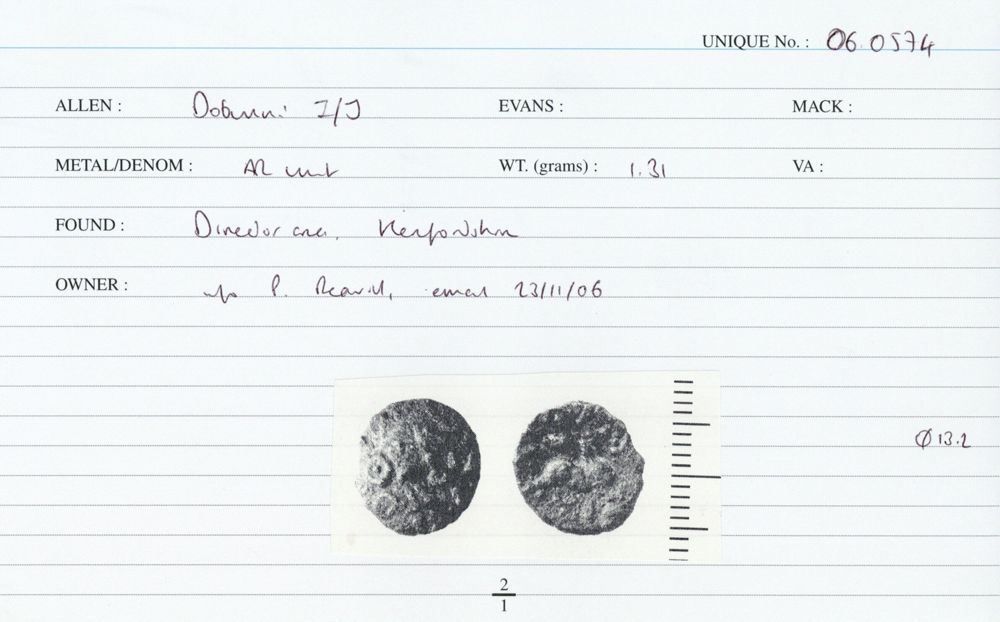 UNIQUE No. : 06.0574
ALLEN : Dobunni I/J EVANS : MACK :
METAL/DENOM : AR unit WT. (grams) : 1.31 VA :
FOUND : Dinedor area, Herefordshire
OWNER : info P. Reavill, email 23/11/06
Ø 13.2
2
1